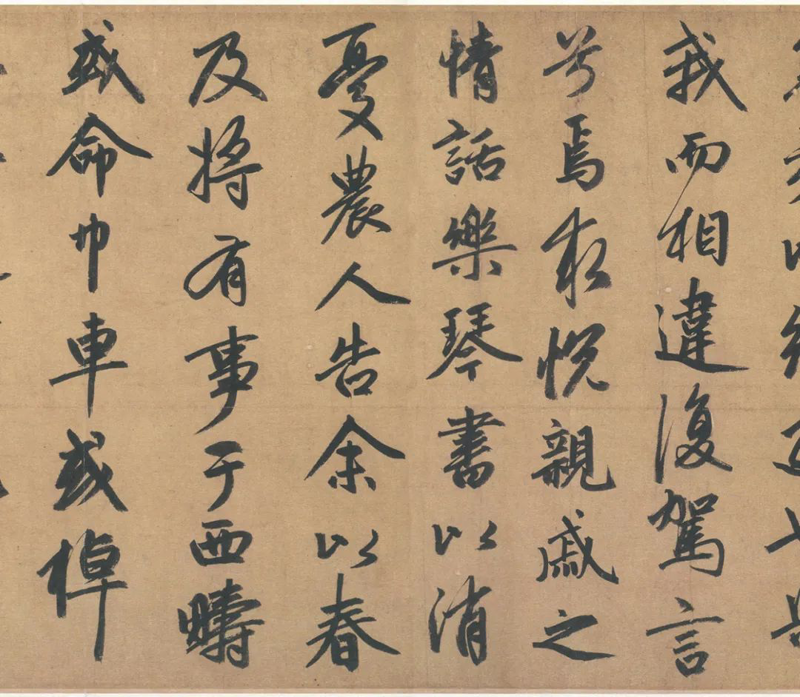 我而相違復駕言
兮焉求悅親戚之
情話樂琴書以消
憂農人告余以春
及將有事于西疇
或命巾車或棹